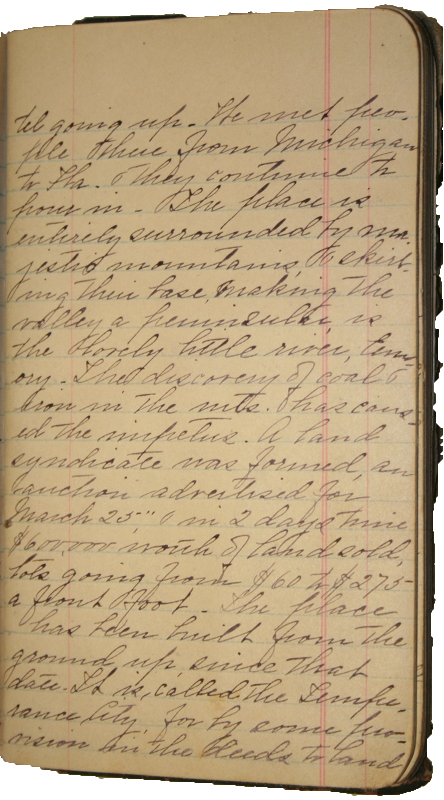 tel going up. We met peo-
ple there from Michigan
to Fla. They continue to
pour in. The place is
entirely surrounded by ma-
jestic mountains, & skirt-
ing their base, making the
valley a peninsula, is
the lovely little river, Em-
ory. The discovery of coal &
iron in the mts. has caus-
ed the impetus. A land
syndicate was formed, an
auction advertised for
March 25", & in 2 days time
$600,000 worth of land sold,
lots going from $60 to $275
a front foot. The place
has been built from the
ground up since that
date. It is called the Tempe-
rance City, for by some pro-
vision in the deeds to land